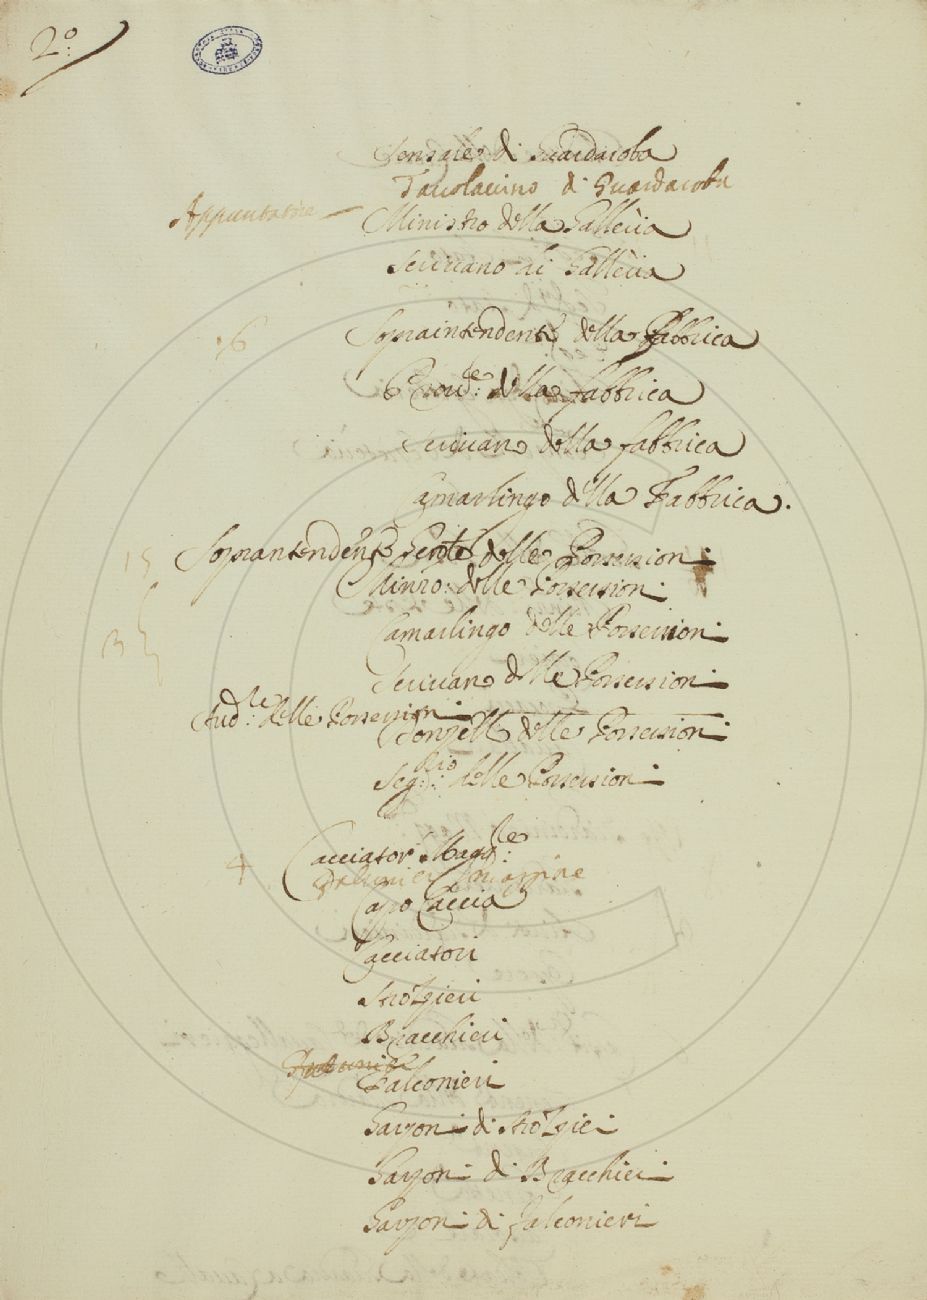 2º:
Sensale di Guardaroba
Tavolaccino di Guardaroba
Appuntature — Ministro della Galleria
Scrivano di Galleria
6 Sopraintendente della Fabbrica
Provle: della fabbrica
Scrivano della fabbrica
Camarlingo della Fabbrica.
15 Soprantendente Genle delle Possessioni
Minro: delle Possessioni
Camarlingo delle Possessioni
Scrivano delle Possessioni
Audre: delle Possessioni
Conselle delle Possessioni
Segrio: delle Possessioni
4 Cacciator Magre:
Capo Caccia
Cacciatori
Strozzieri
Bracchieri
Falconieri
Garzoni di Strozzieri
Garzoni di Bracchieri
Garzoni di Falconieri